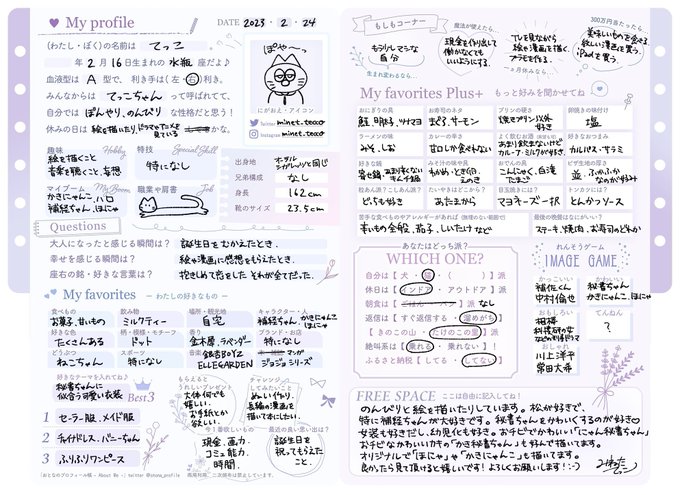 My profile
DATE 2023・2・24
(わたし・ぼく)の名前は てっこ
年2月16日生まれの 水瓶 座だよ♪
血液型は A 型で、利き手は(左・右)利き。
みんなからは てっこちゃん って呼ばれてて、
自分では ぼんやり、のんびり な性格だと思う!
休みの日は 絵を描いたり、ドラマやアニメを見ている かな。
ぽや〜っ
にがおえ・アイコン
Twitter minet.teco
Instagram minet.teco
趣味 Hobby
絵を描くこと
音楽を聴くこと、妄想
特技 Special Skill
特になし
マイブーム My Boom
かきにゃんこ、ハロ
補経ちゃん、ほにゃ
職業や肩書 Job
出身地 ホ・ル・ホースのシガレッツと同じ
兄弟構成 なし
身長 162cm
靴のサイズ 23.5cm
Questions
大人になったと感じる瞬間は? 誕生日をむかえたとき。
幸せを感じる瞬間は? 絵や漫画に感想をもらえたとき。
座右の銘・好きな言葉は? 抱きしめて恋をした それが全てだった。
My favorites − わたしの好きなもの −
食べもの お菓子、甘いもの
飲み物 ミルクティー
場所・観光地 自宅
キャラクター・人 補経ちゃん、かきにゃんこ ほにゃ
好きな色 たくさんある
柄・模様・モチーフ ドット
香り 金木犀、ラベンダー
ブランド・お店 特になし
どうぶつ ねこちゃん
スポーツ 特になし
音楽 銀杏BOYZ ELLEGARDEN
マンガ ジョジョシリーズ
好きなテーマを入れてね♪
秘書ちゃんに似合う可愛い衣装 Best3
1 セーラー服、メイド服
2 チャイナドレス、バニーちゃん
3 ふりふりワンピース
もらえるとうれしいプレゼント
大体何でも嬉しい。お手紙とか欲しい。
チャレンジしてみたいこと
ぬい作り。長編の漫画を描いてみたい。
今1番欲しいもの
現金、画力、コミュ能力、時間。
最近の良い思い出は?
誕生日を祝ってもらえたこと。
{おとなのプロフィール帳 - About Me -} twitter @otona_profile 商用利用、二次配布は禁止しています。
もしもコーナー
生まれ変わるなら…
もう少しマシな自分
魔法が使えたら…
現金を作り出して働かなくてもいいようにする。
一ヶ月休みなら…
TVを見ながら絵や漫画を描く。プラモを作る。
300万円当たったら…
美味しいものを食べる 欲しい漫画を買う。iPadを買う。
My favorites Plus+ もっと好みを聞かせてね
おにぎりの具 鮭、明太子、ツナマヨ
お寿司のネタ まぐろ、サーモン
プリンの硬さ 焼きプリン以外好き
卵焼きの味付け 塩
ラーメンの味 みそ、しお
カレーの辛さ 甘口しか食べれない
よく飲むお酒(飲む方のみ) あまり飲まないけどカルーアミルクが好き
好きなおつまみ カルパス、サラミ
好きな鍋 寄せ鍋、あまり辛くないキムチ鍋
みそ汁の味や具 わかめ・とき卵・えのき
おでんの具 こんにゃく、白滝 たまご
ピザ生地の厚さ 並、ふかふかなのが好み
粒あん派?こしあん派? どっちも好き
たいやきはどこから? あたまから
目玉焼きには? マヨネーズ一択
トンカツには? とんかつソース
苦手な食べものやアレルギーがあれば(無理のない範囲で) 青いもの全般、茄子、しいたけなど
最後の晩餐はなにがいい? ステーキ、焼肉、お寿司のどれか
あなたはどっち派?
WHICH ONE?
自分は【犬・猫・( )】派
休日は【インドア・アウトドア】派
朝食は【ごはん・パン】派 なし
返信は【すぐ返信する・溜めがち】
【きのこの山・たけのこの里】派
絶叫系は【乗れる・乗れない】!
ふるさと納税【してる・してない】
れんそうゲーム
IMAGE GAME
かっこいい
補佐くん
中村倫也
かわいい
秘書ちゃん
かきにゃんこ、ほにゃ
おもしろい
相棒
科捜研の女
などの刑事ドラマ
てんねん
?
おしゃれ
川上洋平
常田大希
FREE SPACE ここは自由に記入してね!
のんびりと絵を描いたりしています。松が好きで、
特に補経ちゃんが大好きです。秘書ちゃんをかわいくするのが好き♡
女装も好きだし、幼児化も好き。おチビでかわいい「にゃん秘書ちゃん」
おチビなかわいいけもの「かき秘書ちゃん」も好んで描いてます。
オリジナルで「ほにゃ」や「かきにゃんこ」も描いてます。
良かったら見て頂けると嬉しいです!よろしくお願いします!:-)